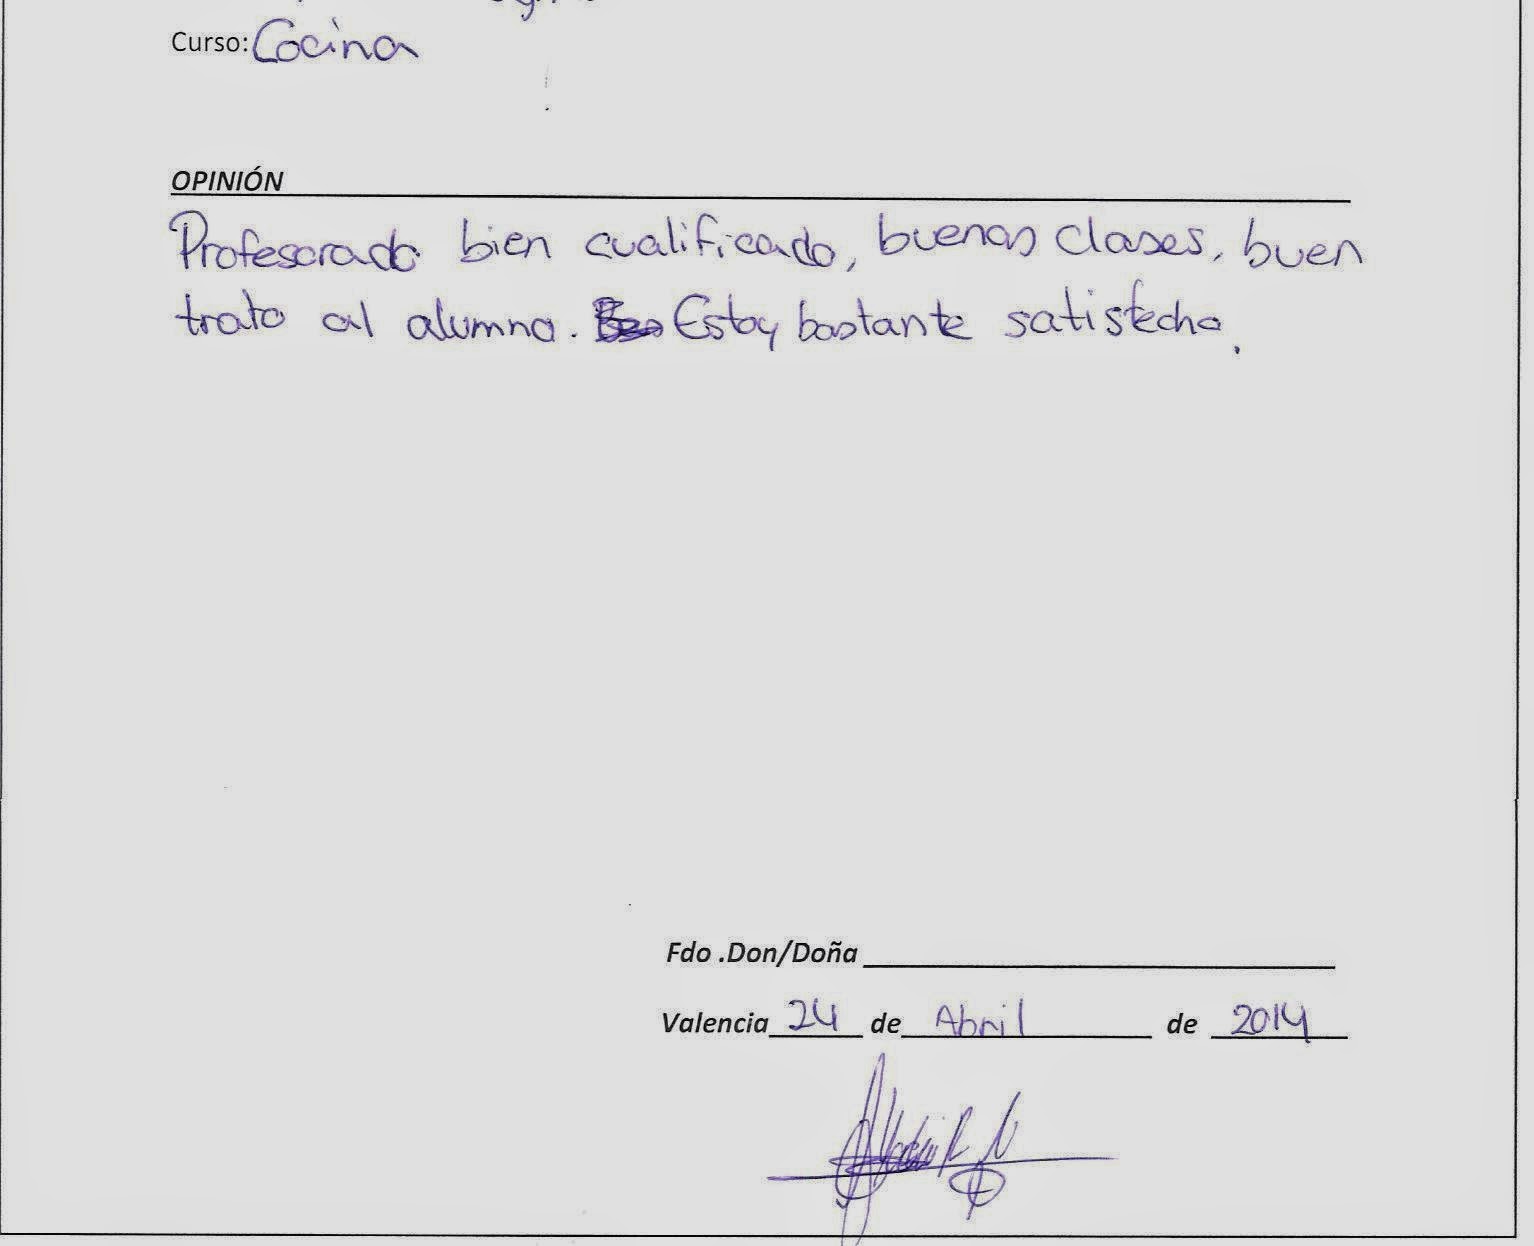 Curso: Cocina
OPINIÓN
Profesorado bien cualificado, buenas clases, buen
trato al alumno. Estoy bastante satisfecho.
Fdo .Don/Doña
Valencia 24 de Abril de 2014